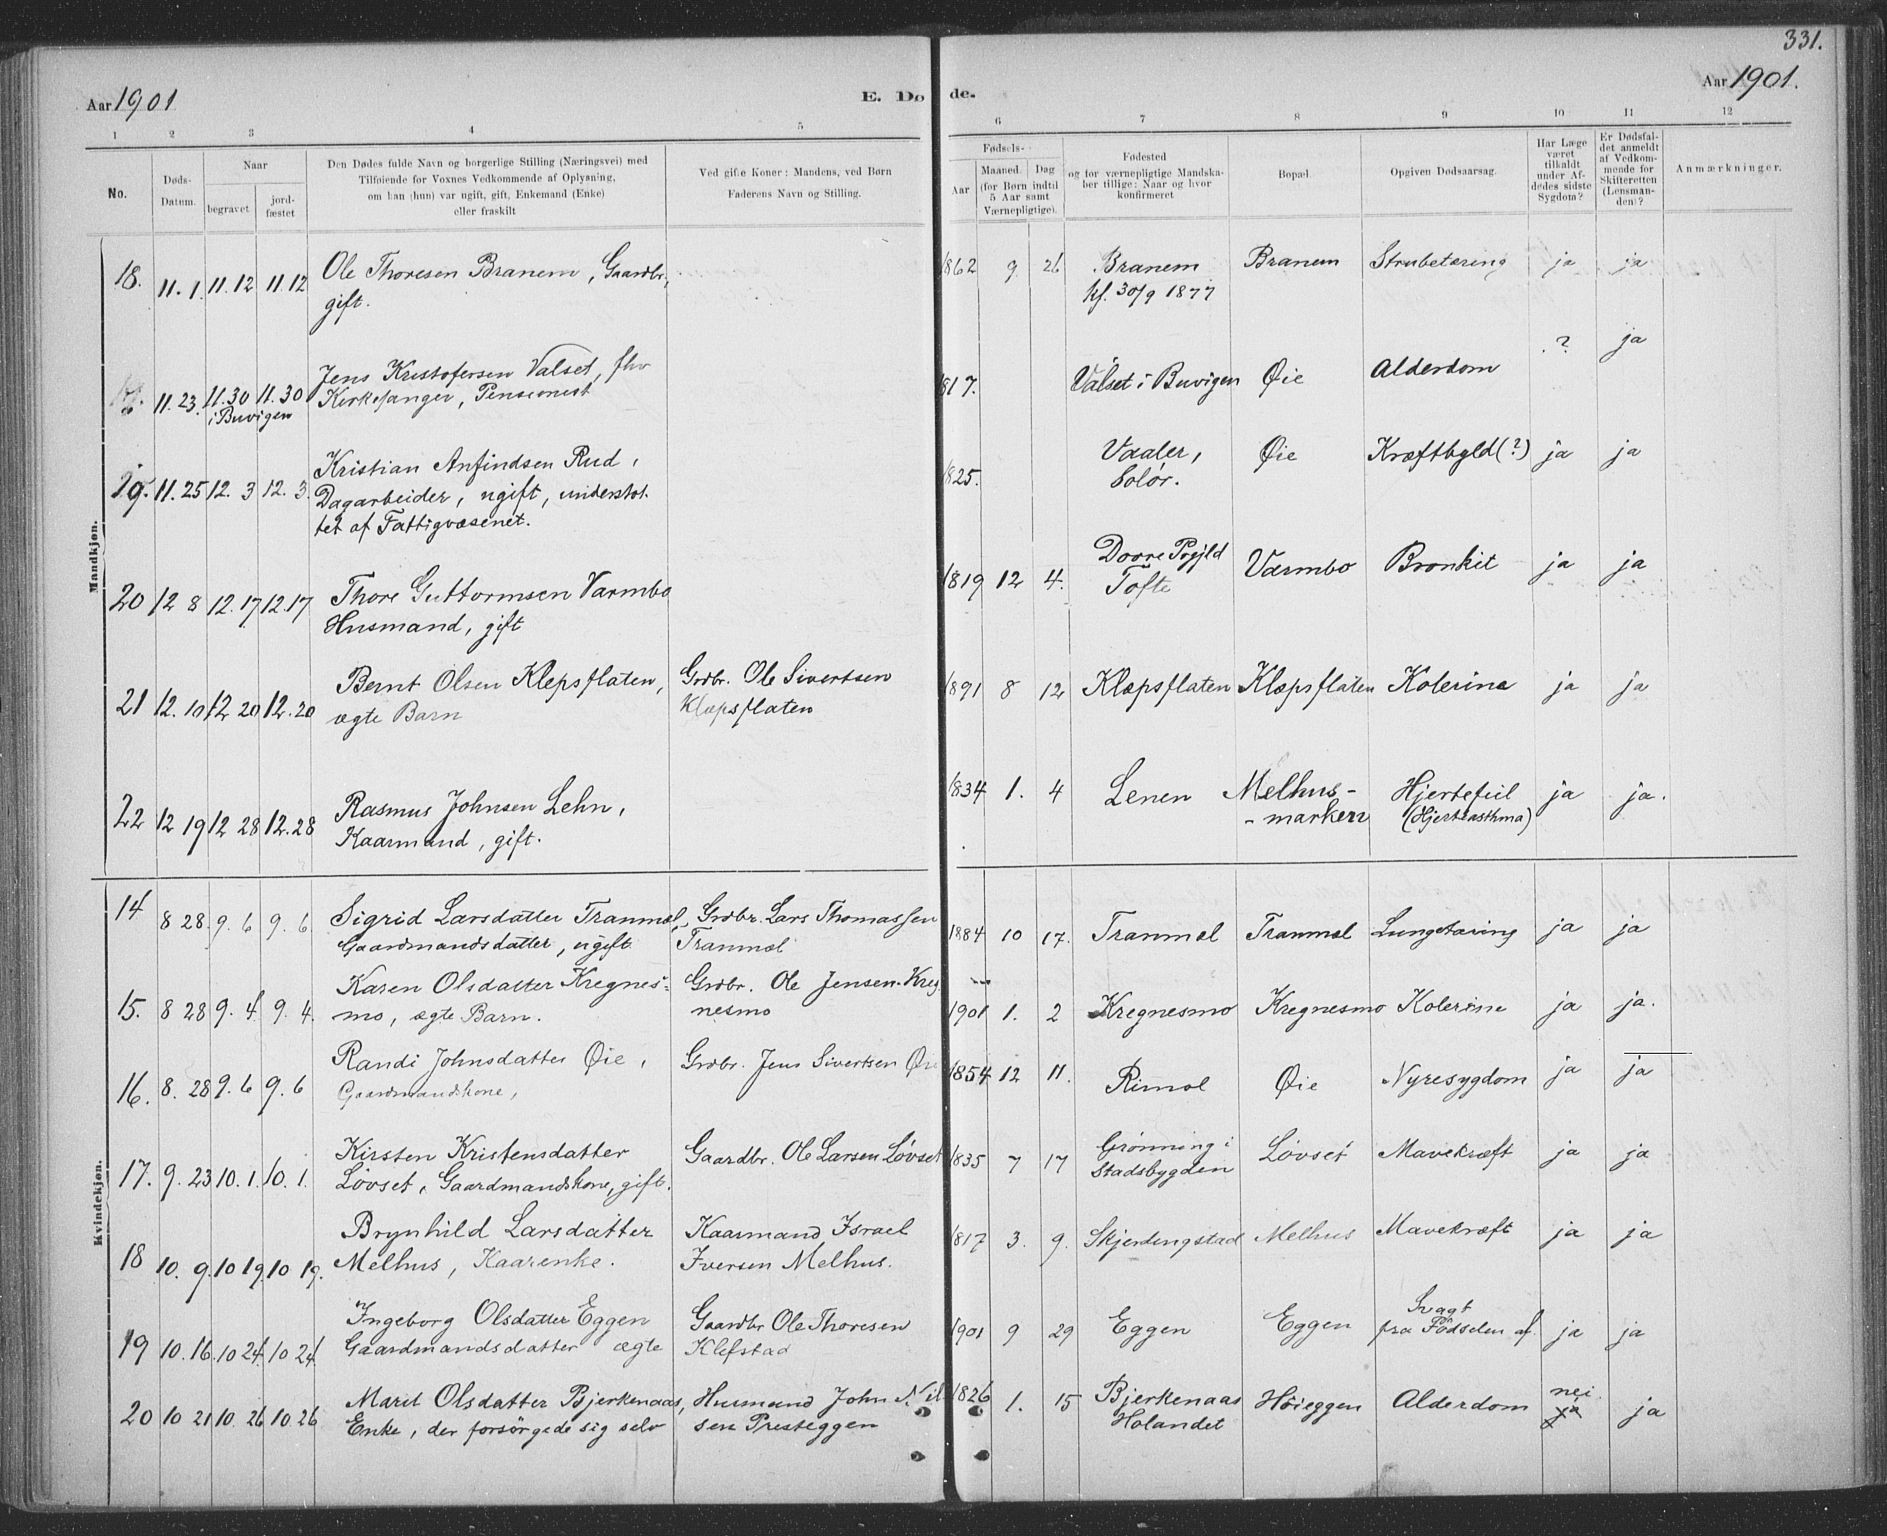 331.
Aar 1901
E. Dø de.
Aar 1901.
1 2 3 4 5 6 7 8 9 10 11 12
No.
Døds-Datum.
Naar
begravet
jord-fæstet
Den Dødes fulde Navn og borgerlige Stilling (Næringsvei) med
Tilføiende for Voxnes Vedkommende af Oplysning,
om han (hun) var ugift, gift, Enkemand (Enke)
eller fraskilt
Ved gifte Koner: Mandens, ved Børn
Faderens Navn og Stilling.
Fødsels-
Aar
Maaned. Dag
(for Børn indtil
5 Aar samt
Værnepligtige).
Fødested
og for værnepligtige Mandska-
ber tillige: Naar og hvor
konfirmeret
Bopæl.
Opgiven Dødsaarsag.
Har Læge
været
tilkaldt
under Af-
dødes sidste
Sygdom?
Er Dødsfal-
det anmeldt
af Vedkom-
mende for
Skifteretten
(Lensman-
den)?
Anmærkninger.
Mandkjøn.
18. 11. 1. 11. 12 11. 12 Ole Thoresen Branem, Gaardbr., 1862 9 26 Branem Branem Strubetæring ja ja
gift. kf. 30/9 1877
11. 23. 11. 30 11. 30 Jens Kristofersen Valset, fhv 1817. Valset i Buvigen Øie Alderdom ? ja
i Buvigen Kirkesanger, Pensionist
19. 11. 25 12. 3 12. 3. Kristian Anfindsen Rud, 1825. Vaaler, Øie Kræftbyld (?) ja ja
Dagarbeider, ugift, understøt- Solør.
tet af Fattigvæsenet.
20 12 8 12. 17 12. 17 Thore Guttormsen Varmbo 1819 12 4. Dovre Prgjld Varmbo Bronkit ja ja
Husmand, gift Tofte
21 12. 10 12 20 12. 20 Bernt Olsen Klepsflaten, Grdbr. Ole Sivertsen 1891 8 12 Klæpsflaten Klæpsflaten Kolerine ja ja
ægte Barn Klæpsflaten
22 12 19 12 28 12. 28 Rasmus Johnsen Lehn, 1834 1. 4 Lenen Melhus- Hjertefeil ja ja.
Kaarmand, gift. -marken (Hjerteasthma)
Kvindekjøn.
14 8 28 9. 6 9. 6 Sigrid Larsdatter Tranmæl, Grdbr. Lars Thomassen 1884 10 17. Tranmæl Tranmæl Lungetæring ja ja
Gaardmandsdatter, ugift Tranmæl
15. 8 28 9. 4. 9. 4. Karen Olsdatter Kregnes- Grdbr. Ole Jensen Kreg- 1901 1. 2 Kregnesmo Kregnesmo Kolerine ja ja.
mo, ægte Barn. nesmo
16. 8. 28 9. 6 9. 6 Randi Johnsdatter Øie, Grdbr. Jens Sivertsen Øie 1854 12 11. Rimol Øie Nyresygdom ja ja
Gaardmandskone,
17. 9. 23 10. 1. 10. 1. Kirsten Kristensdatter Gaardbr. Ole Larsen Løvset 1835 7 17 Grønning i Løvset Mavekræft ja ja
Løvset, Gaardmandskone, gift. Stadsbygden
18 10. 9. 10 19. 10 19. Brynhild Larsdatter Kaarmand Israel 1817 3. 9. Skjerdingstad Melhus Mavekræft ja ja
Melhus, Kaarenke. Iversen Melhus.
19 10. 16. 10 24. 10 24. Ingeborg Olsdatter Eggen Gaardbr Ole Thoresen 1901 9 29 Eggen Eggen Svagt ja ja
Gaardmandsdatter ægte Klefstad fra Fødselen af.
20 10 21 10. 26 10. 26 Marit Olsdatter Bjerkenaas, Husmand John Nil- 1826 1. 15 Bjerkenaas Høieggen Alderdom nei ja
Enke, der forsørgede sig selv sen Presteggen Holandet ja